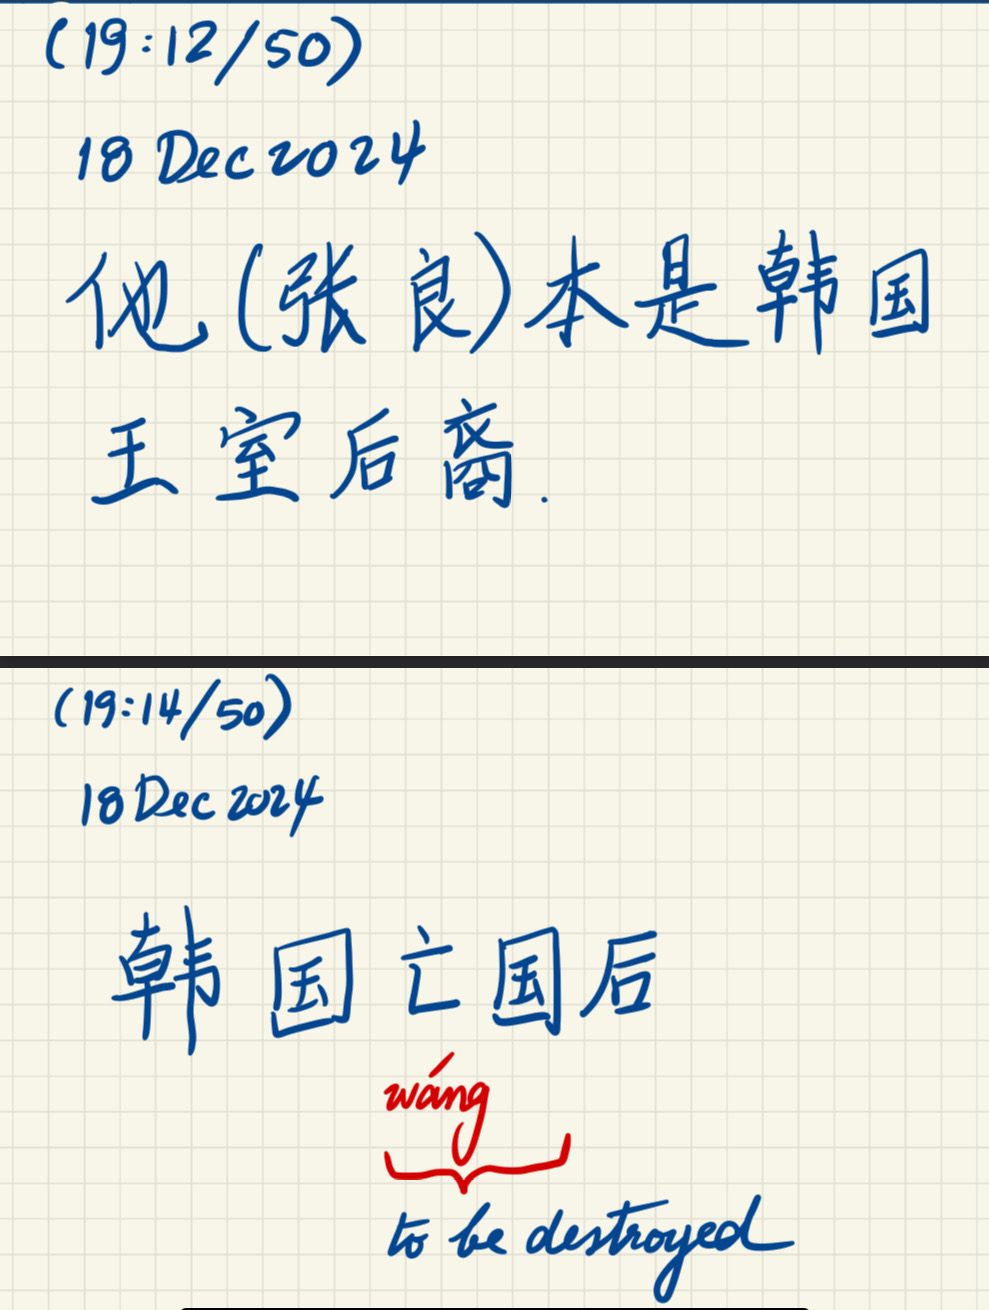 (19:12/50)
18 Dec 2024
他(张良)本是韩国
王室后裔.
(19:14/50)
18 Dec 2024
韩国亡国后
wáng
to be destroyed